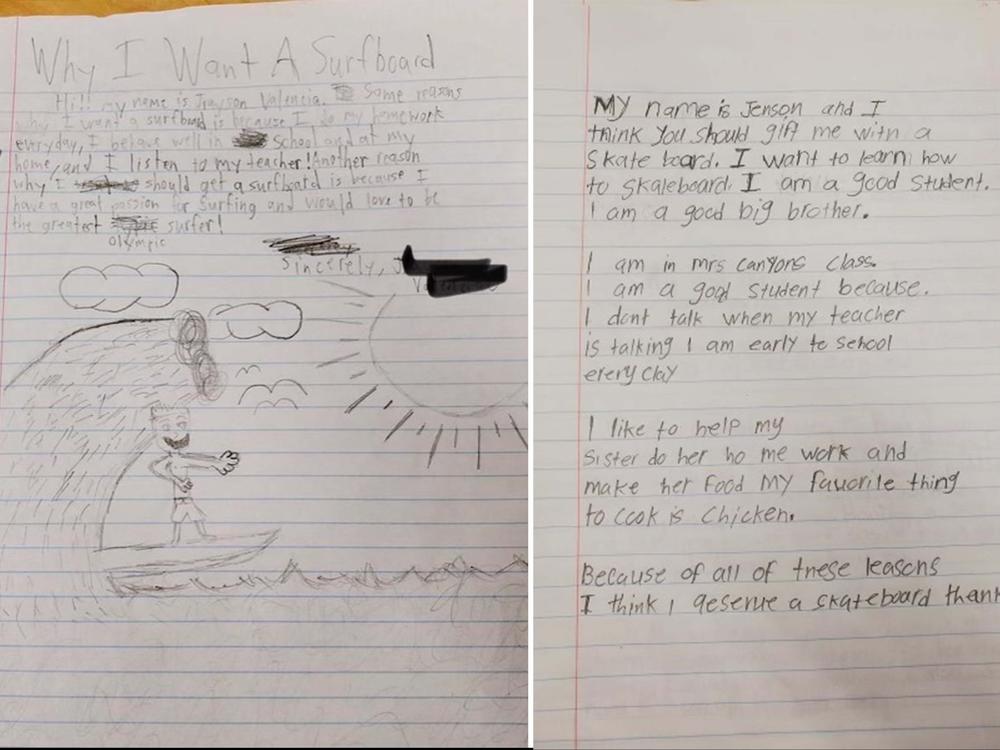 Why I Want A Surfboard
Hi!! my name is Jrayson Valencia. Some reasons
why I want a surfboard is because I do my homework
everyday, I behave well in School and at my
home, and I listen to my teacher! Another reason
why I should get a surfboard is because I
have a great passion for Surfing and would love to be
the greatest surfer!
Olympic
Sincerely, J
MY name is Jenson and I
think you should gift me with a
Skate board. I want to learn how
to skateboard. I am a good student.
I am a good big brother.
I am in mrs canyons class.
I am a good student because.
I dont talk when my teacher
is talking I am early to school
every day
I like to help my
Sister do her ho me work and
make her food MY favorite thing
to cook is chicken.
Because of all of these reasons
I think I deserve a skateboard thank